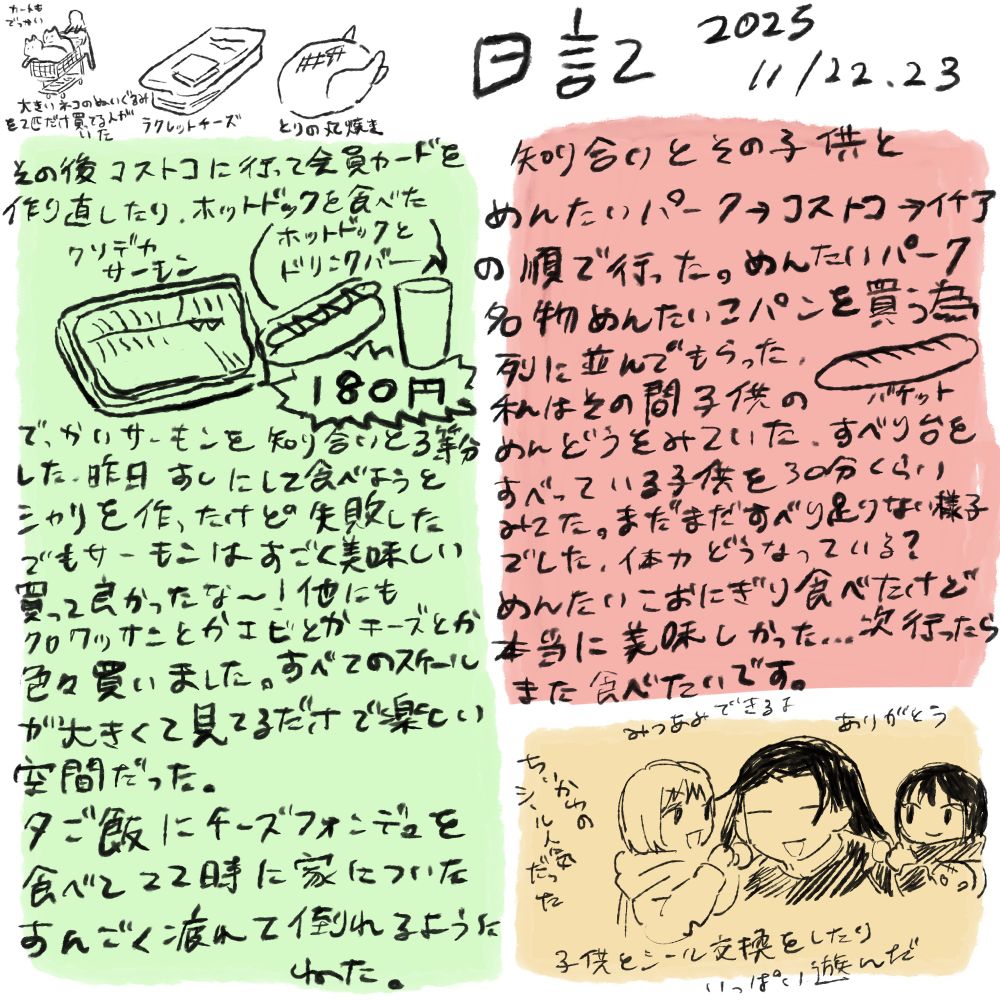 日記
2025
11/22.23
知り合いとその子供と
めんたいパーク→コストコ→イチア
の順で行った。めんたいパーク
名物めんたいこパンを買う為
列に並んでもらった.
バケット
私はその間子供の
めんどうをみていた.すべり台を
すべっている子供を30分くらい
みてた。まだまだすべり足りない様子
でした.体力どうなっている?
めんたいこおにぎり食べたけど
本当に美味しかった...次行ったら
また食べたいです。
カートも
でっかい
大きいネコのぬいぐるみ
を2匹だけ買ってる人が
いた
ラクレットチーズ
とりの丸焼き
その後コストコに行って会員カードを
作り直したり.ホットドックを食べた
クソデカ
サーモン
ホットドックと
ドリンクバー
180円
でっかいサーモンを知り合いと3等分
した.昨日すしにして食べようと
シャリを作ったけどの失敗した
でもサーモンはすごく美味しい
買って良かったな〜!他にも
クロワッサンとかエビとかチーズとか
色々買いました。すべてのスケール
が大きくて見てるだけで楽しい
空間だった。
夕ご飯にチーズフォンデュを
食べて22時に家についた
すんごく疲れて倒れるように
ねた。
みつあみできるよ
ありがとう
ちいかわの
シール人気
だった
子供とシール交換をしたり
いっぱい遊んだ